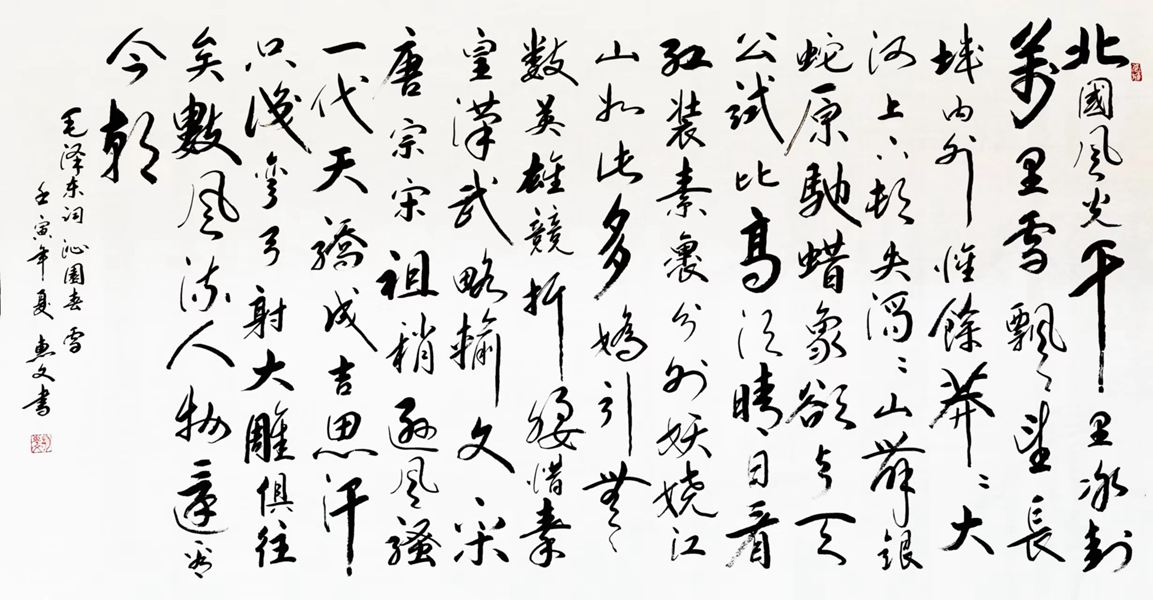 北國風光千里冰封
萬里雪飄〻望長
城内外惟餘莽〻大
河上下頓失滔〻山舞銀
蛇原馳蜡象欲与天
公試比高須晴日看
紅装素裹分外妖嬈江
山如此多嬌引無
數英雄競折腰惜秦
皇漢武略輸文采
唐宗宋祖稍遜風騷
一代天驕成吉思汗
只識彎弓射大雕俱往
矣數風流人物還看
今朝
毛泽东词沁園春雪
壬寅年夏 惠文書